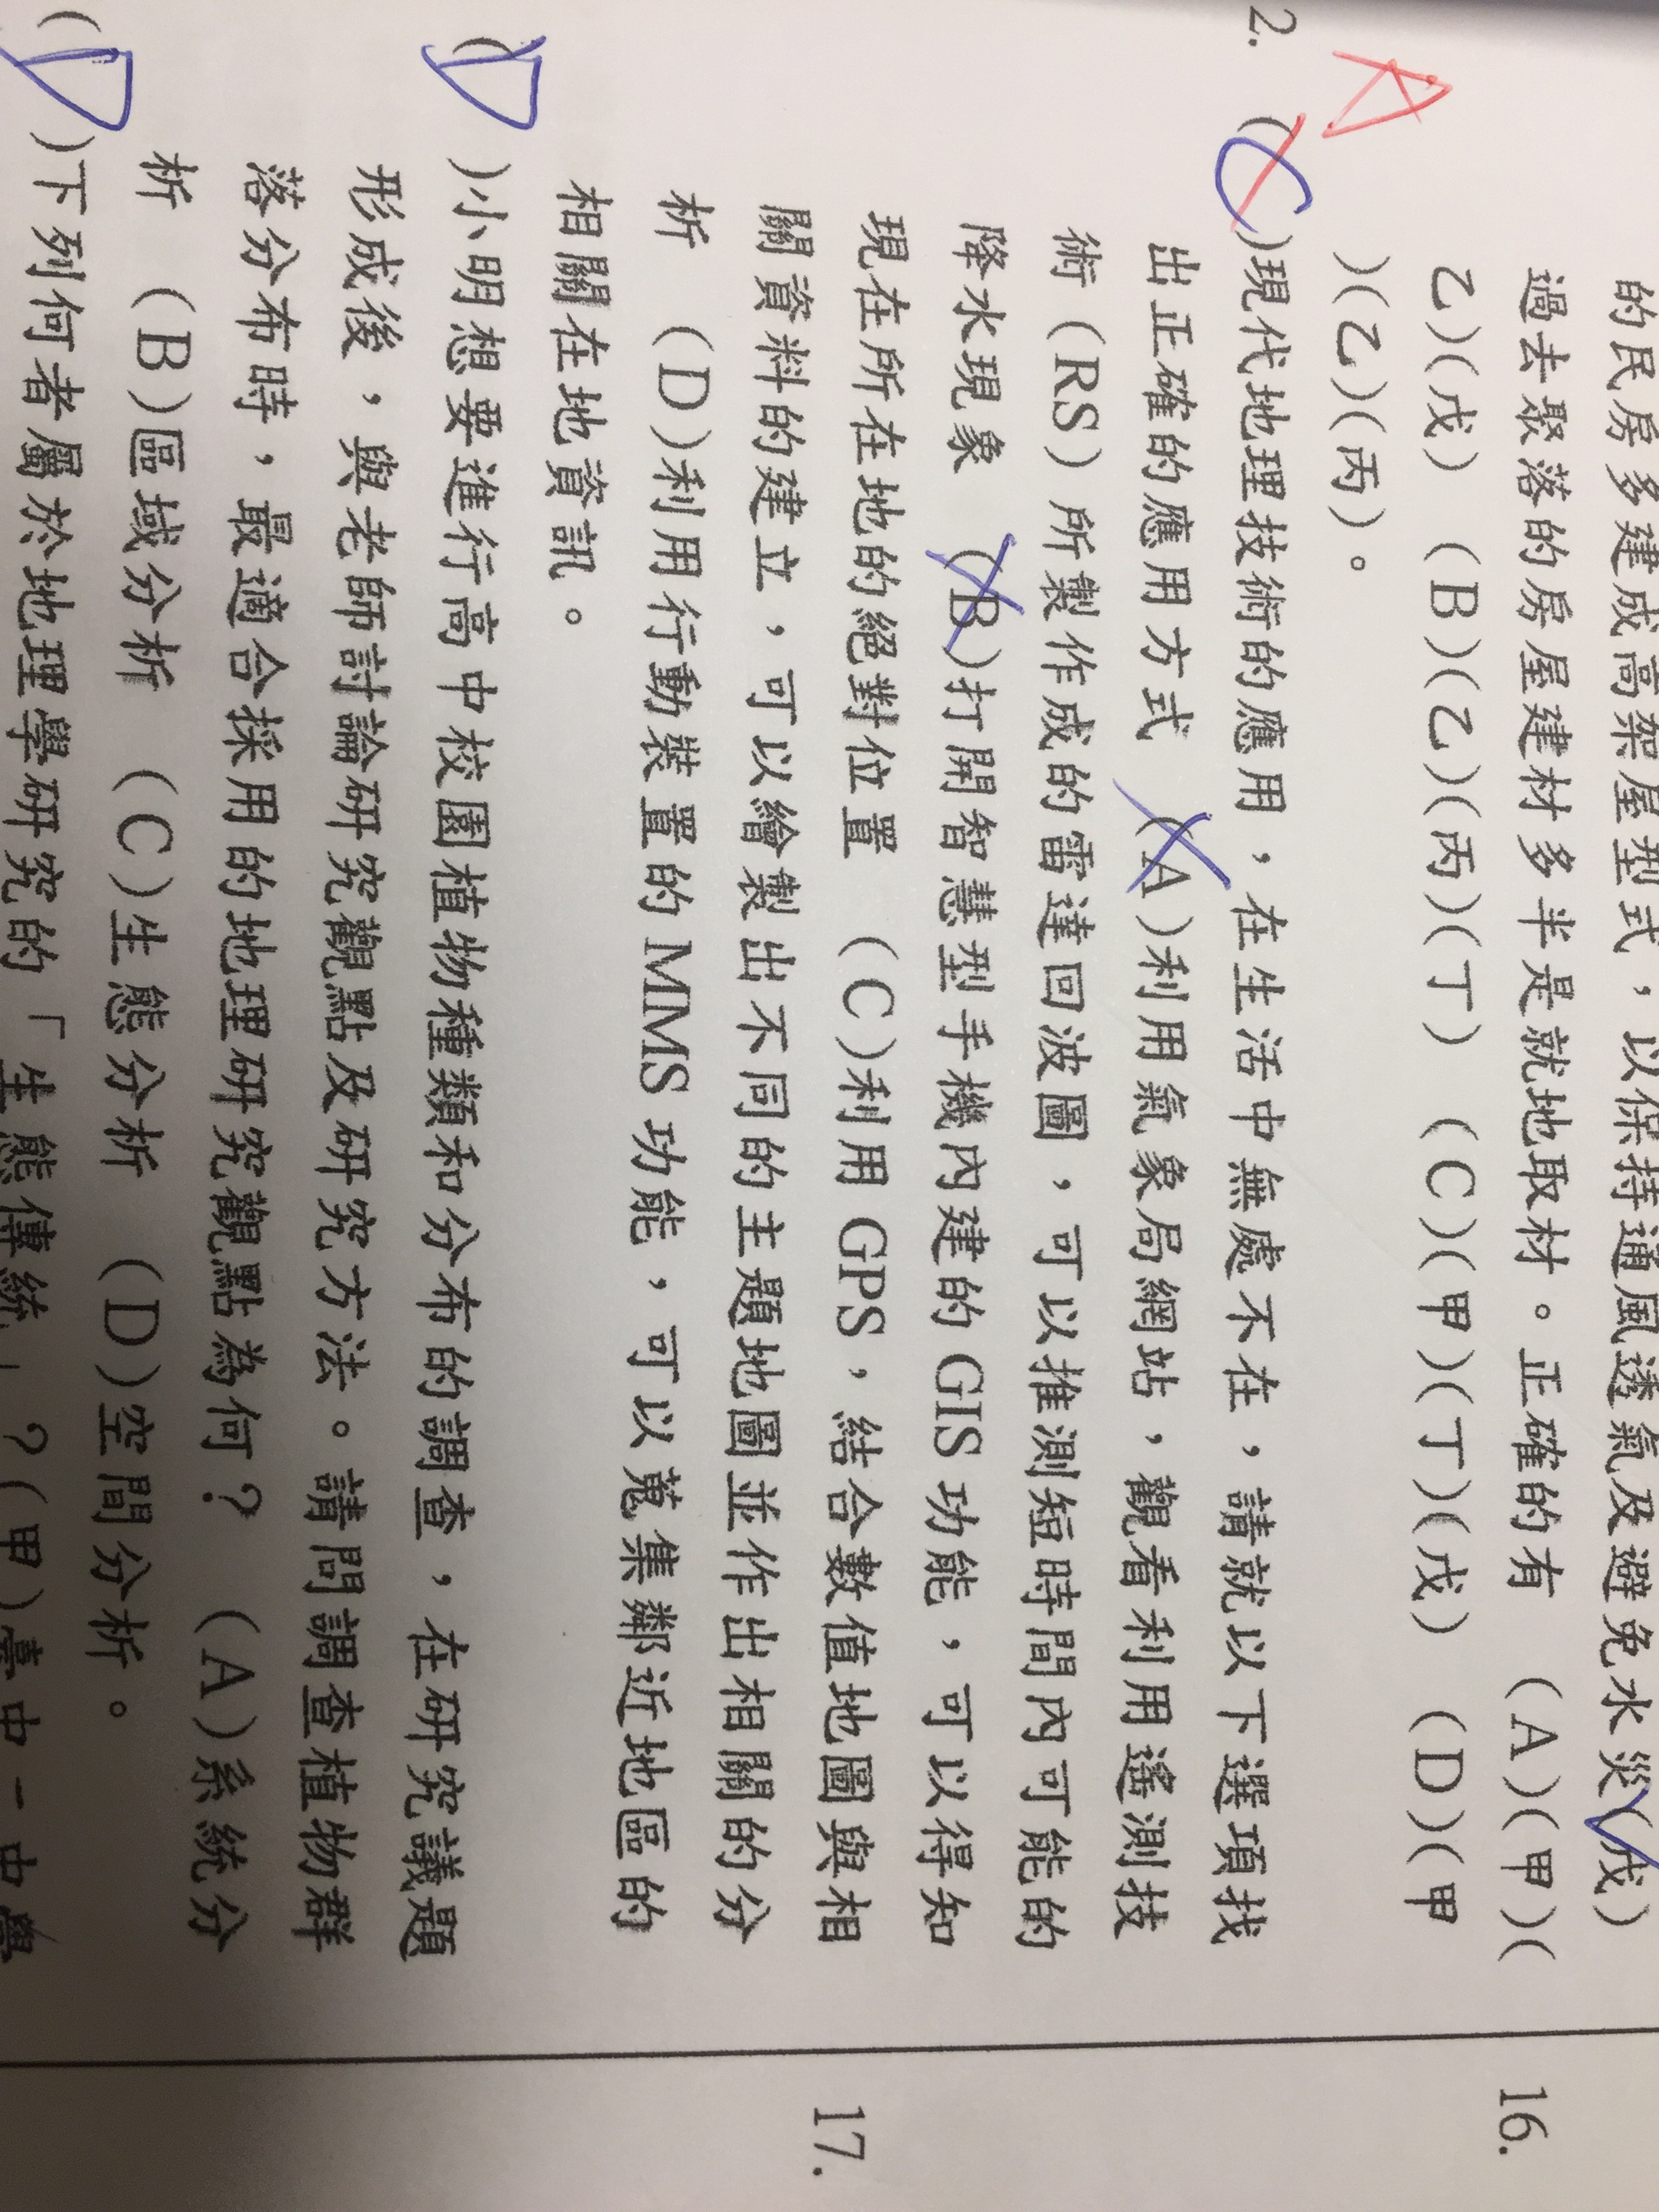 的民房多建成高架屋型式，以保持通風透氣及避免水災(戊)
過去聚落的房屋建材多半是就地取材。正確的有 (A)(甲)(
乙)(戊) (B)(乙)(丙)(丁) (C)(甲)(丁)(戊) (D)(甲
)(乙)(丙)。
A
2. (C)現代地理技術的應用，在生活中無處不在，請就以下選項找
出正確的應用方式 (A)利用氣象局網站，觀看利用遙測技
術(RS)所製作成的雷達回波圖，可以推測短時間內可能的
降水現象 (B)打開智慧型手機內建的GIS功能，可以得知
現在所在地的絕對位置 (C)利用GPS，結合數值地圖與相
關資料的建立，可以繪製出不同的主題地圖並作出相關的分
析 (D)利用行動裝置的MMS功能，可以蒐集鄰近地區的
相關在地資訊。
(D)小明想要進行高中校園植物種類和分布的調查，在研究議題
形成後，與老師討論研究觀點及研究方法。請問調查植物群
落分布時，最適合採用的地理研究觀點為何？ (A)系統分
析 (B)區域分析 (C)生態分析 (D)空間分析。
(D)下列何者屬於地理學研究的「生態傳統」？(甲)臺中一中
16.
17.